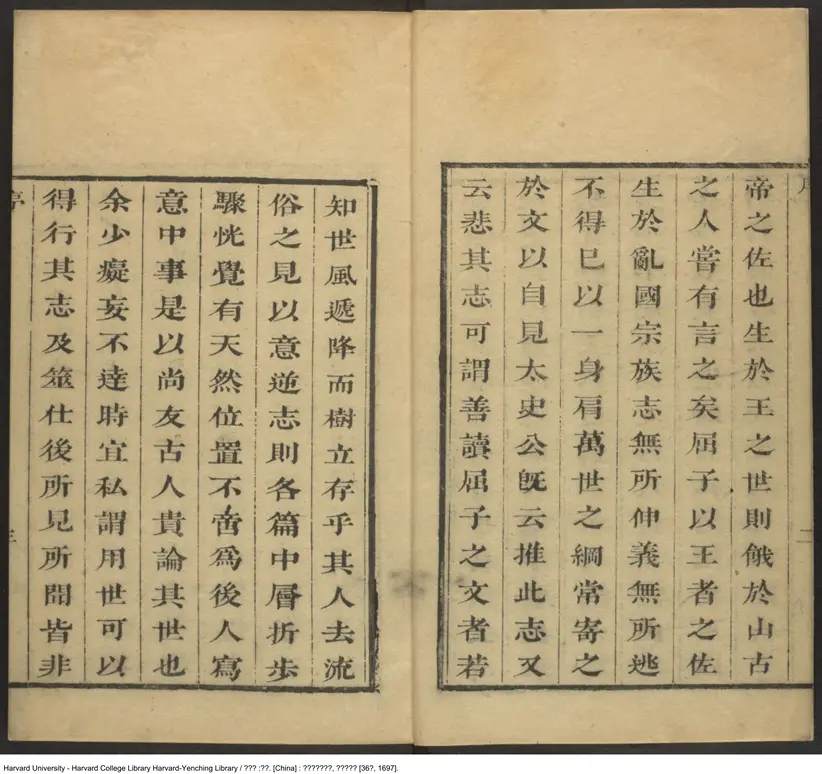 帝之佐也生於王之世則餓於山古
之人嘗有言之矣屈子以王者之佐
生於亂國宗族志無所伸義無所逃
不得已以一身肩萬世之綱常寄之
於文以自見太史公旣云推此志又
云悲其志可謂善讀屈子之文者若
知世風遞降而樹立存乎其人去流
俗之見以意逆志則各篇中層折步
驟恍覺有天然位置不啻爲後人寫
意中事是以尚友古人貴論其世也
余少癡妄不達時宜私謂用世可以
得行其志及筮仕後所見所聞皆非
Harvard University - Harvard College Library Harvard-Yenching Library / ??? ;??. [China] : ???????, ????? [36?, 1697].